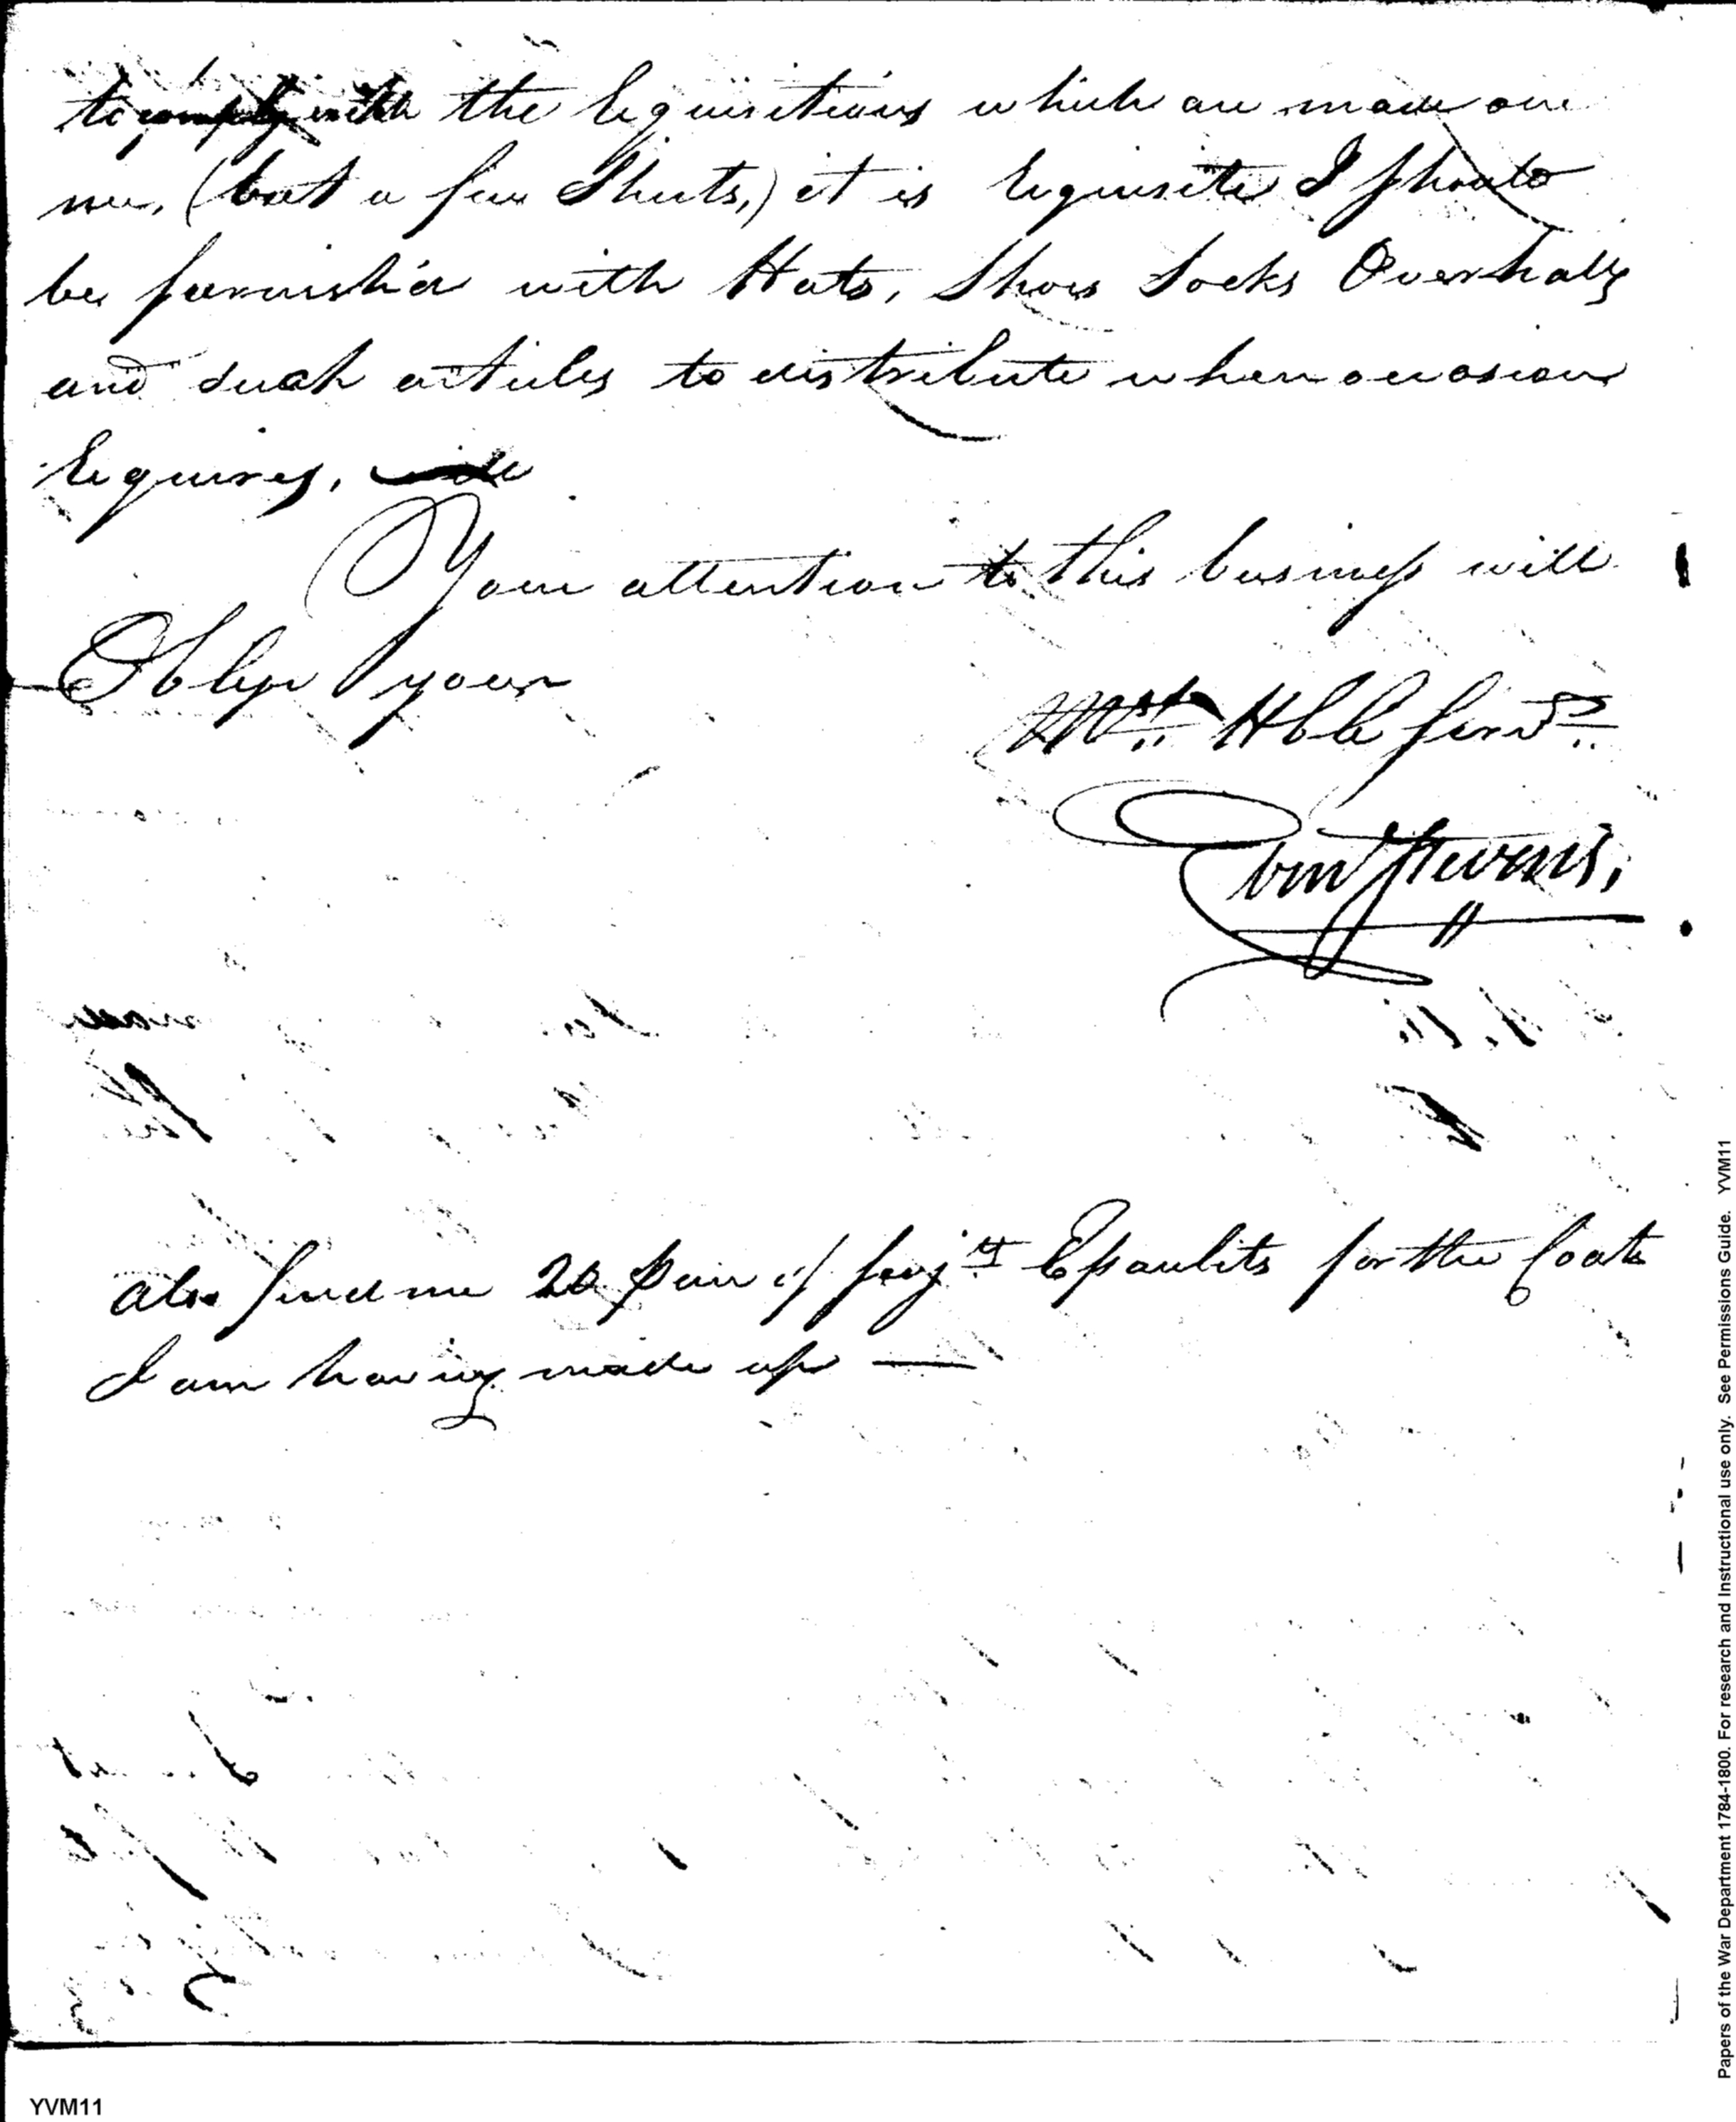 to comply with the Requisitions which are made on
me, (but a few Shirts,) it is Requisite I should
be furnish'd with Hats, Shoes Socks Overhalls
and such articles to distribute when occasion
Requires,
Your attention to this business will
Oblige your
Mst. Hble Servt.
Eben Stevens,
also send me 20 pair of Serjts Epaulits for the Coats
I am having made up —
Papers of the War Department 1784-1800. For research and Instructional use only. See Permissions Guide. YVM11
YVM11